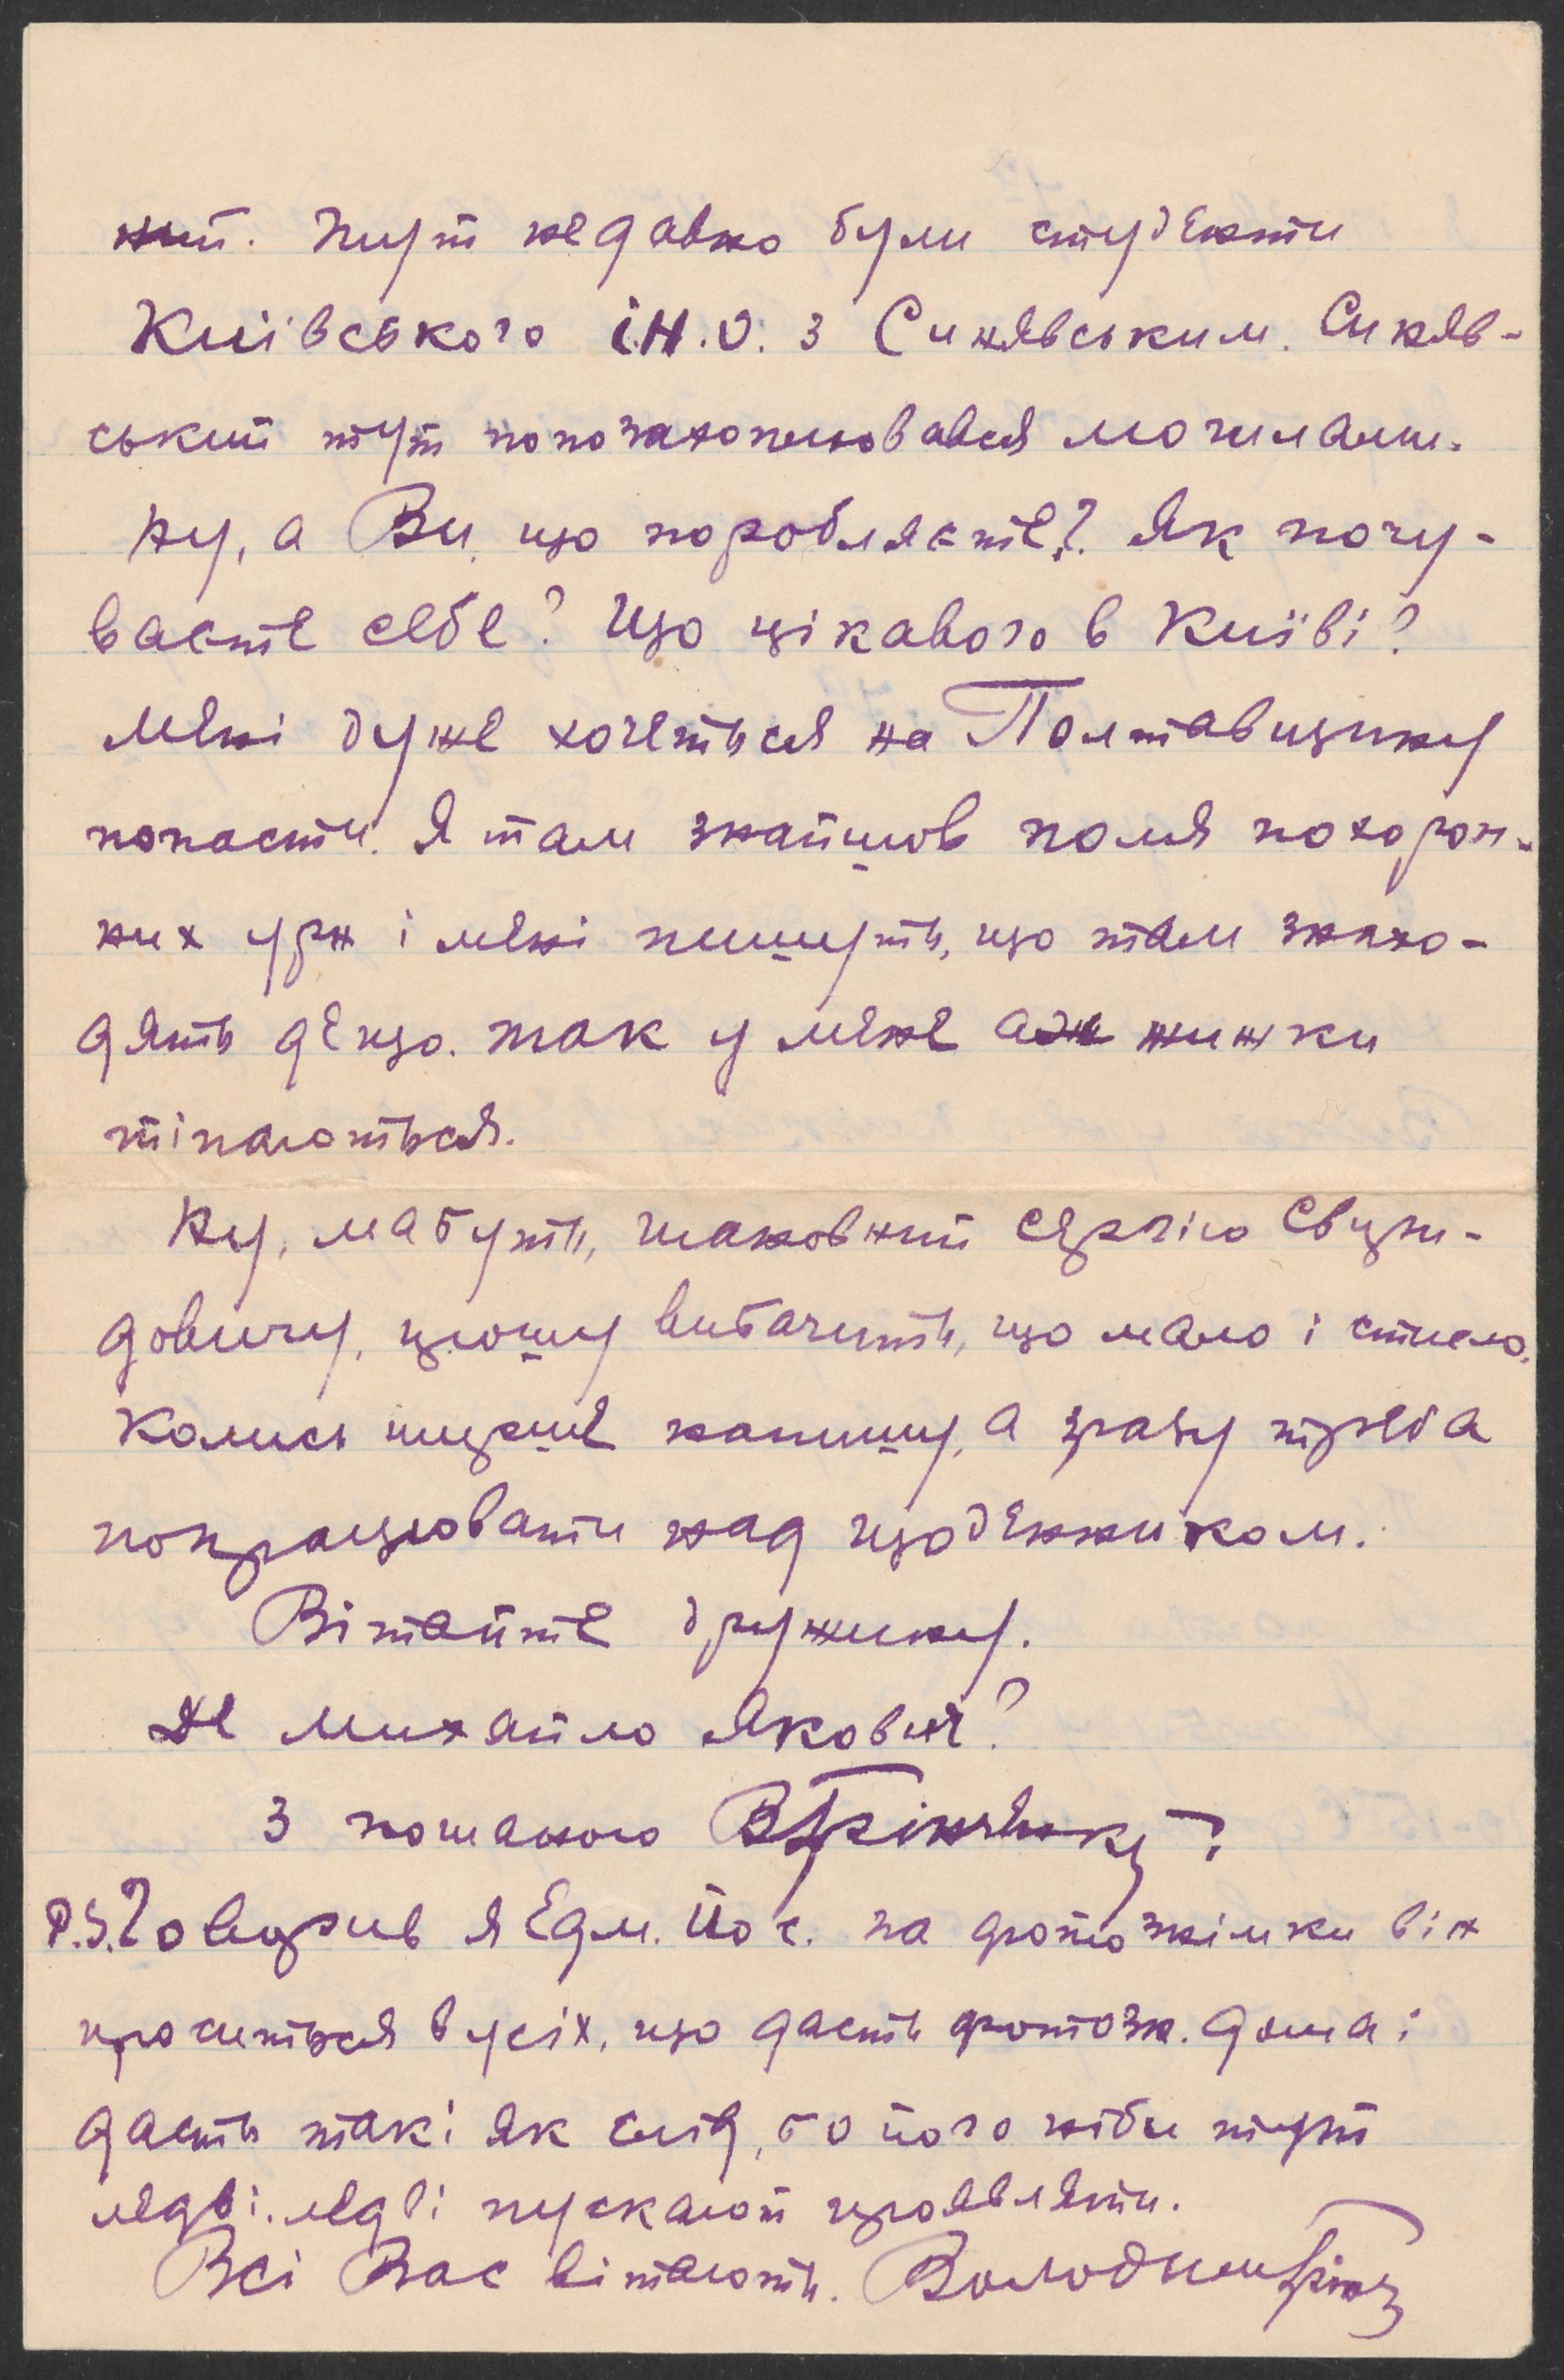 ний. Тут недавно були студенти
Київського І.Н.О. з Синявським. Синяв-
ський тут попозахоплювався могилами.
Ну, а Ви що поробляєте? Як почу-
ваєте себе? Що цікавого в Київі?
Мені дуже хочеться на Полтавщину
попасти. Я там знайшов поля похорон-
них урн і мені пишуть, що там знахо-
дять дещо. Так у мене аж жижки
тіпаються.
Ну, мабуть, шановний Сергію Свири-
довичу, прошу вибачить, що мало і стисло.
Колись ширше напишу, а зразу треба
попрацювати над щоденником.
Вітайте дружину.
Де Михайло Якович?
З пошаною ВГрінченко
P.S. Говорив я Едм. Йос. за фотознімки він
проситься в усіх, що дасть фотозн. дома і
дасть такі як слід, бо його ніби тут
ледві-ледві пускают проявляти.
Всі Вас вітають. Володимир